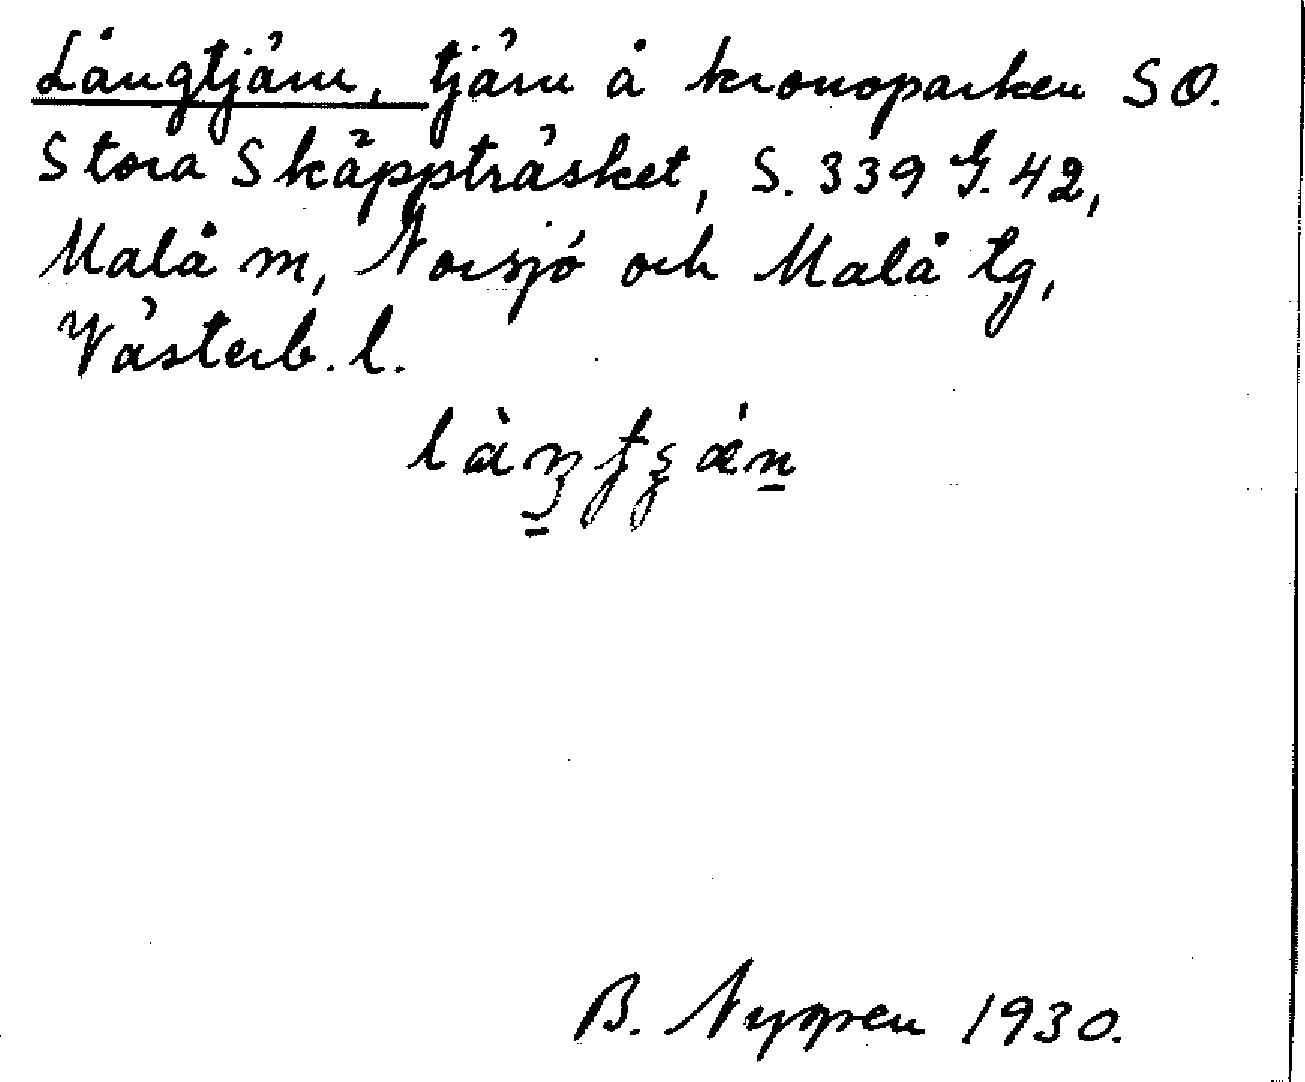 Långtjärn, tjärn å kronoparken SO.
Stora Skäppträsket, S. 339 G. 42,
Malå m, Norsjö och Malå tg,
Västerb. l.
B. Nygren 1930.